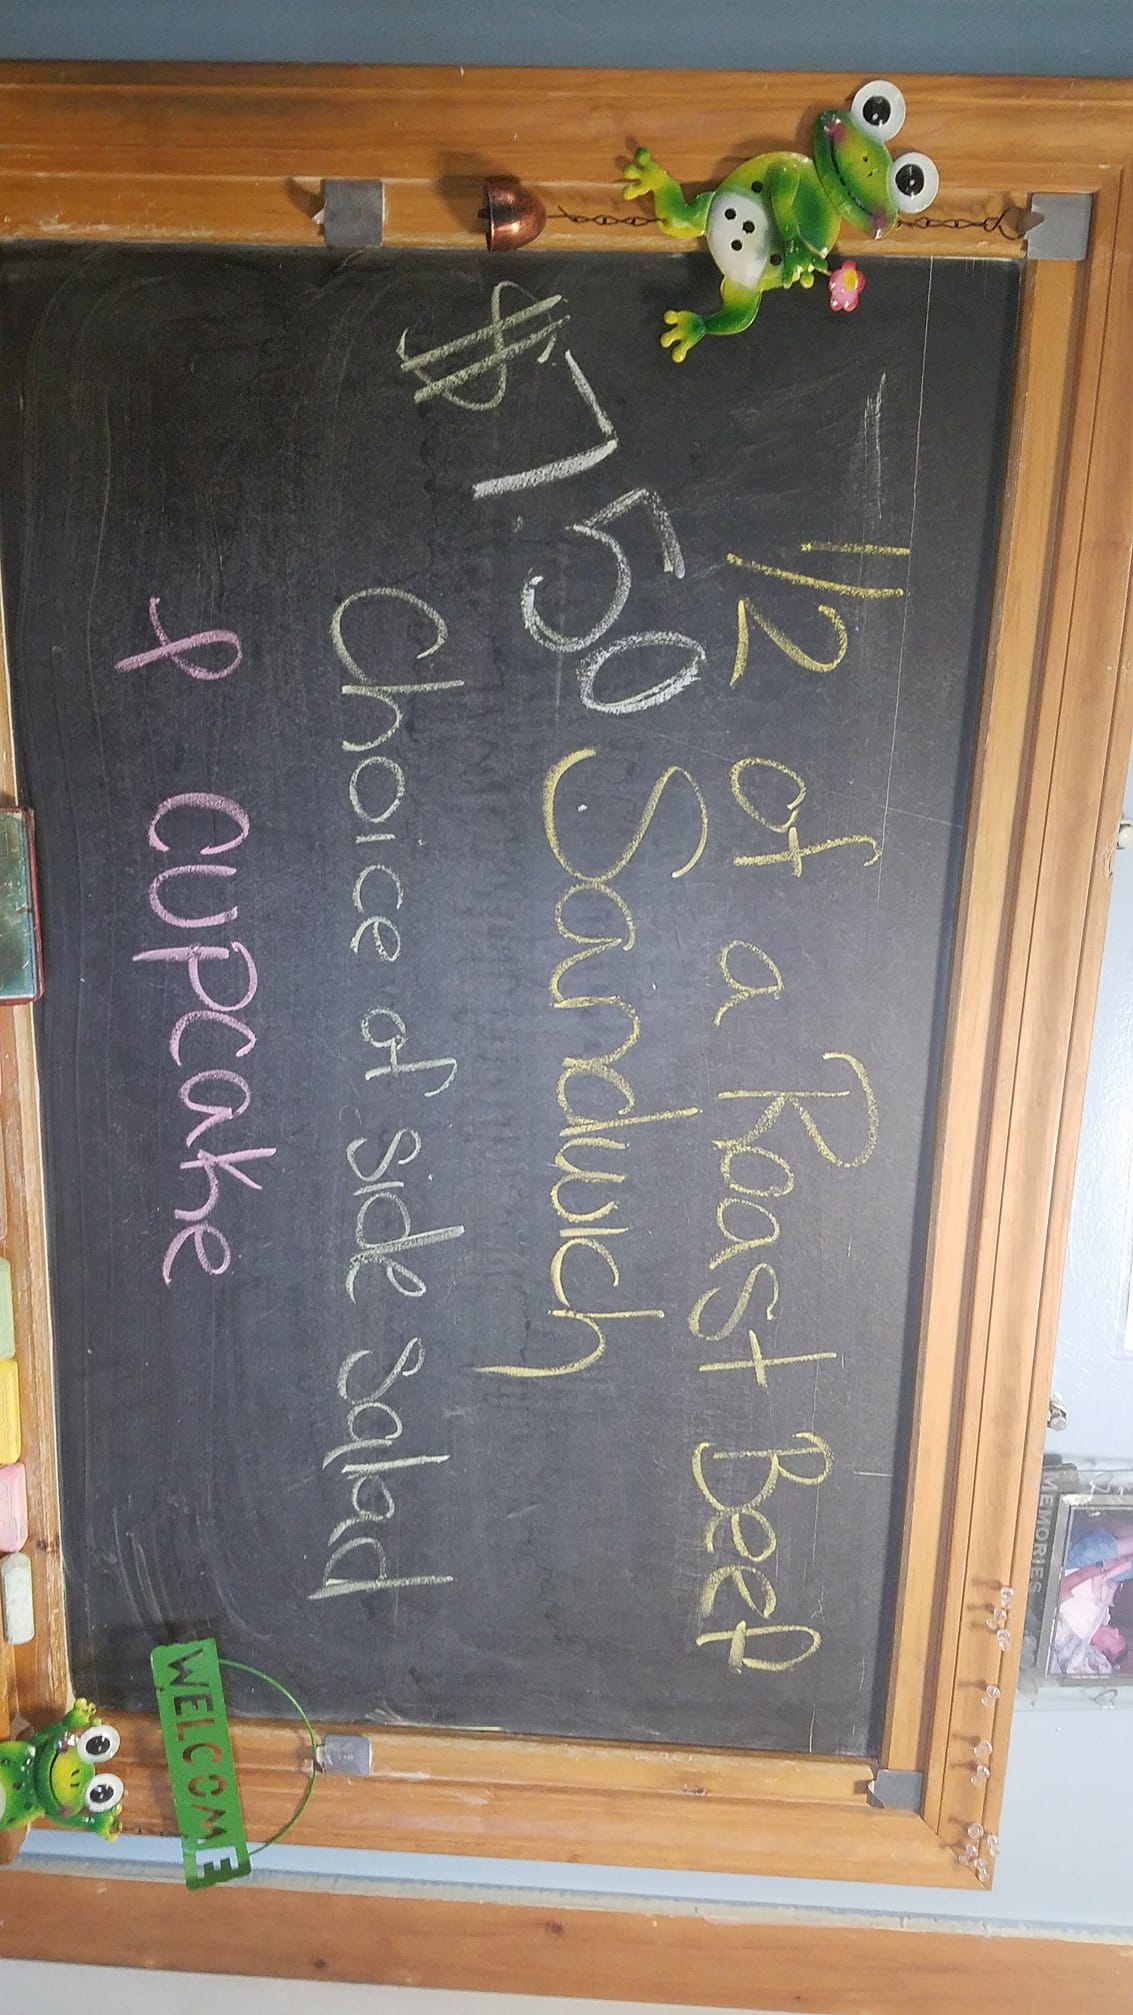 1/2 of a Roast Beef
$7.50 Sandwich
Choice of side salad
& cupcake
WELCOME
MEMORIES